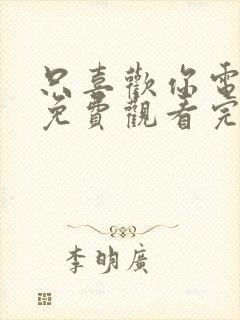 只喜歡你電
免費觀看完
李明廣